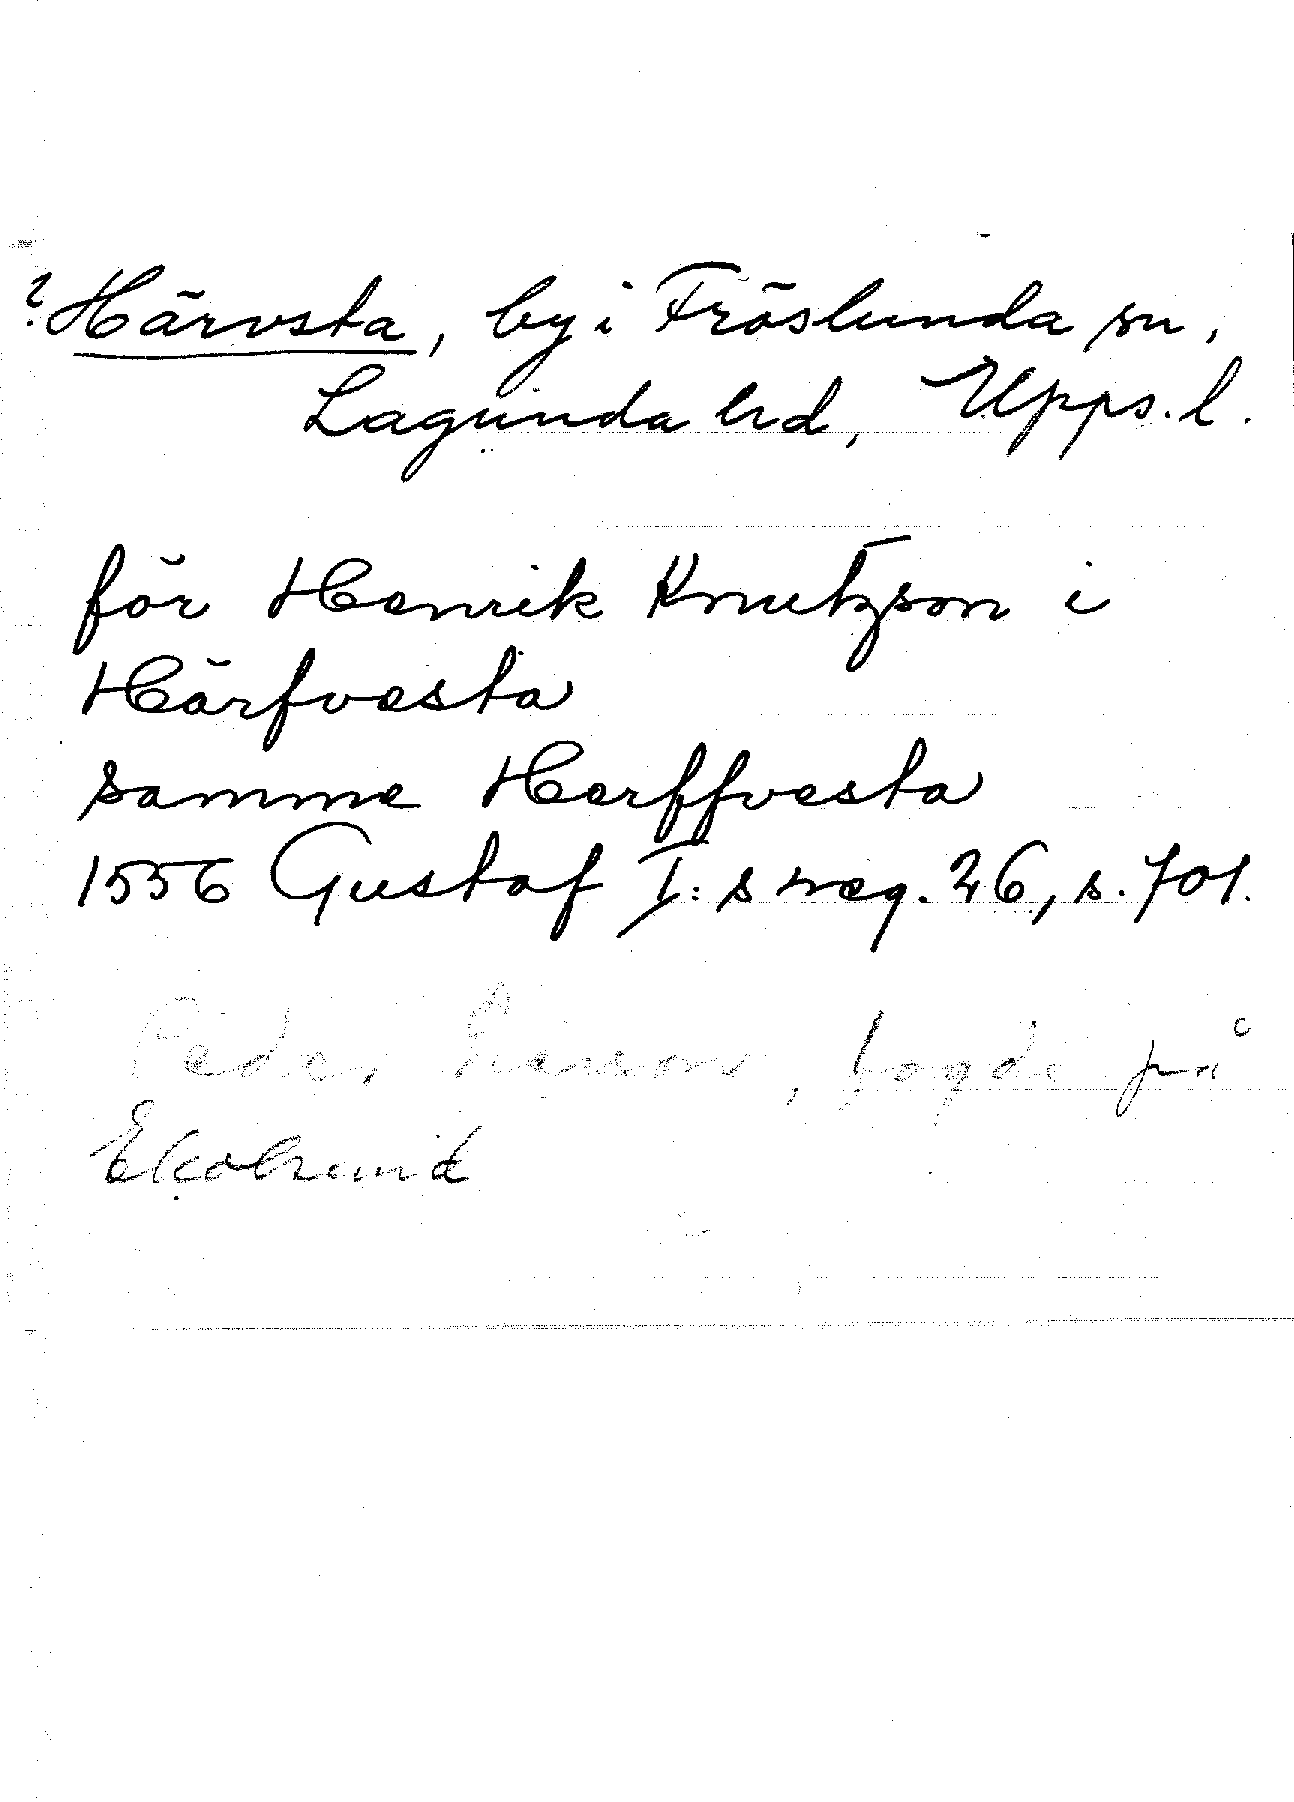 ? Härvsta, by i Fröslunda sn,
Lagunda hd, Upps. l.
för Henrik Knutzson i
Härfvesta
samme Herffvesta
1556 Gustaf I:s reg. 26, s. 701.
Peder , fogde på
Ekolsund